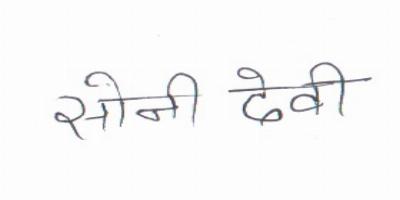 सोनी देवी